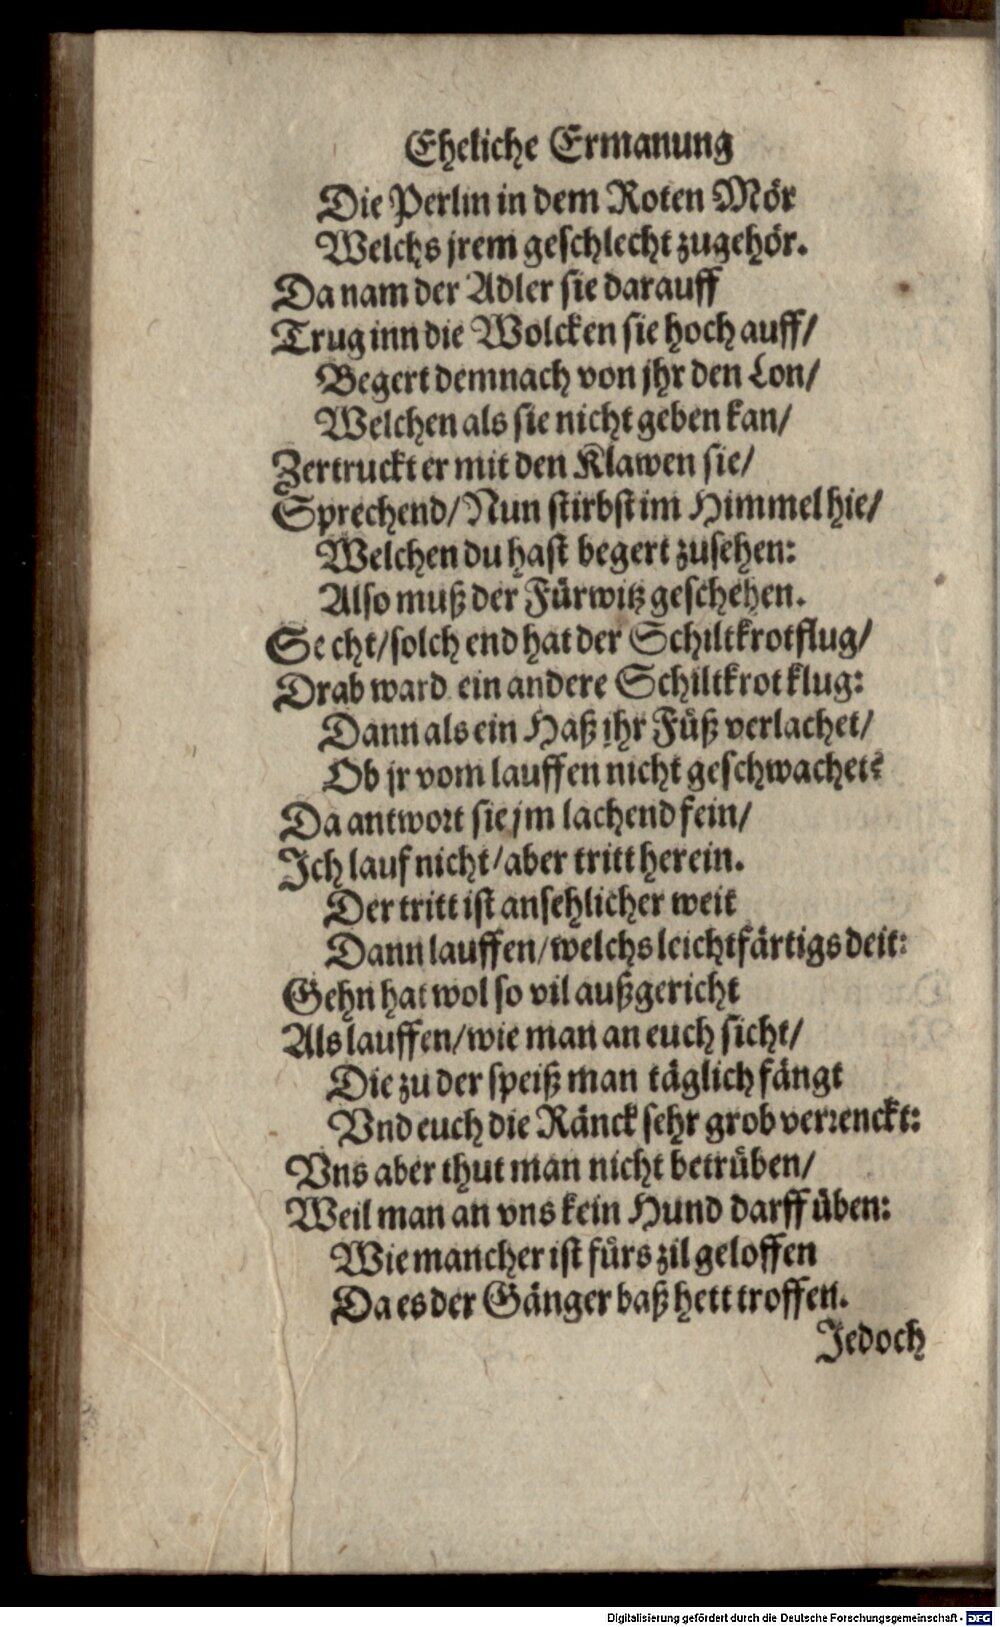 Eheliche Ermanung
Die Perlin in dem Roten Mör
Welchs jrem geschlecht zugehör.
Da nam der Adler sie darauff
Trug inn die Wolcken sie hoch auff/
Begert demnach von jhr den Lon/
Welchen als sie nicht geben kan/
Zertruckt er mit den Klawen sie/
Sprechend/ Nun stirbst im Himmel hie/
Welchen du hast begert zusehen:
Also muß der Fürwitz geschehen.
Secht/ solch end hat der Schiltkrotflug/
Drab ward ein andere Schiltkrot klug:
Dann als ein Haß jhr Füß verlachet/
Ob jr vom lauffen nicht geschwachet?
Da antwort sie jm lachend fein/
Ich lauf nicht/ aber tritt herein.
Der tritt ist ansehlicher weit
Dann lauffen/ welchs leichtfärtigs deit:
Gehn hat wol so vil außgericht
Als lauffen/ wie man an euch sicht/
Die zu der speiß man täglich fängt
Vnd euch die Ränck sehr grob verrenckt:
Vns aber thut man nicht betrüben/
Weil man an vns kein Hund darff üben:
Wie mancher ist fürs zil geloffen
Da es der Gänger baß hett troffen.
Jedoch
Digitalisierung gefördert durch die Deutsche Forschungsgemeinschaft - DFG